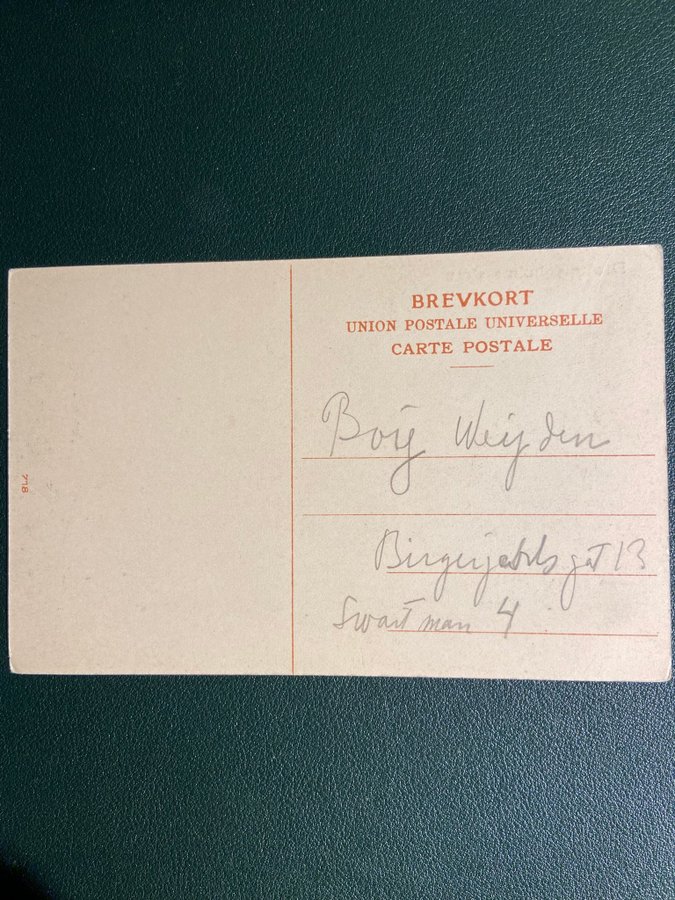 BREVKORT
UNION POSTALE UNIVERSELLE
CARTE POSTALE
Weijden
Birgerjarlsgat 13
Swartman 4
718